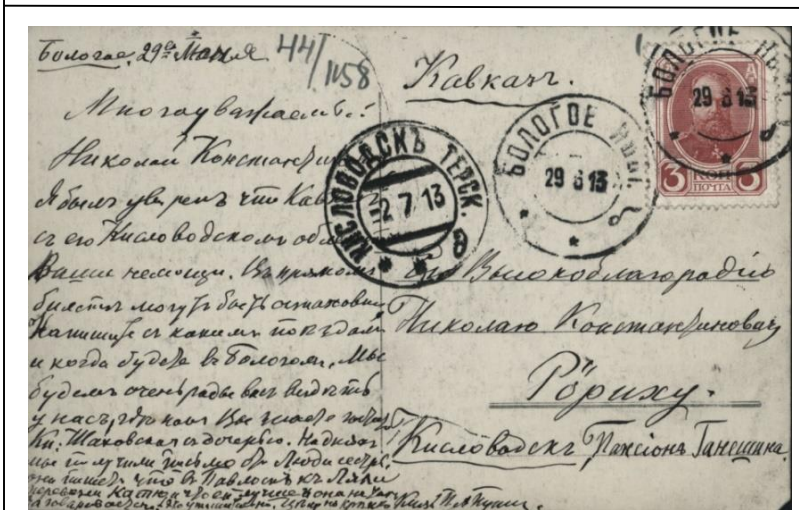 Бологое, 29го Мая
44/1158
Многоуважаемый
Николай Константин
Я былъ уверенъ что Кав
съ его Кисловодскомъ
Ваши немощи. Въ прямомъ
билетъ могутъ быть остановки
Напишите съ какимъ поездомъ
и когда будете въ Бологомъ, Мы
будемъ очень рады васъ видеть
у насъ, где какъ Вы знаете
Кн. Шаховская съ дочерью. На дняхъ
мы получили письмо отъ Люди
она пишетъ что въ Павловскъ къ Ляли
Кавказъ.
БОЛОГОЕ НИК.
29 6 13
КИСЛОВОДСКЪ ТЕРСК.
-2 7 13
БОЛОГОЕ НИК.
29 6 13
3 КОП 3
ПОЧТА
Его Высокоблагородію
Николаю Константиновичу
Рёриху.
Кисловодскъ Пансіонъ Ганешина.